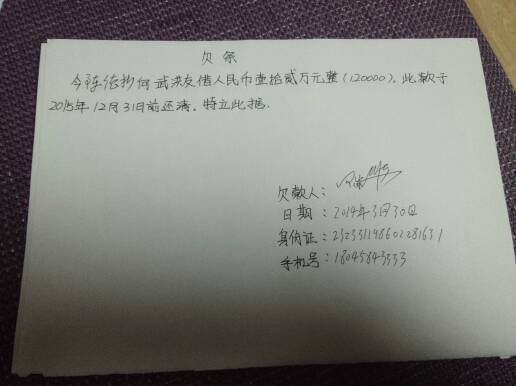 欠条
今陈 向武洪友借人民币壹拾贰万元整(120000),此款于
2015年12月31日前还清。特立此据.
欠款人:
日期:2014年3月30日
身份证:
手机号:18045843333